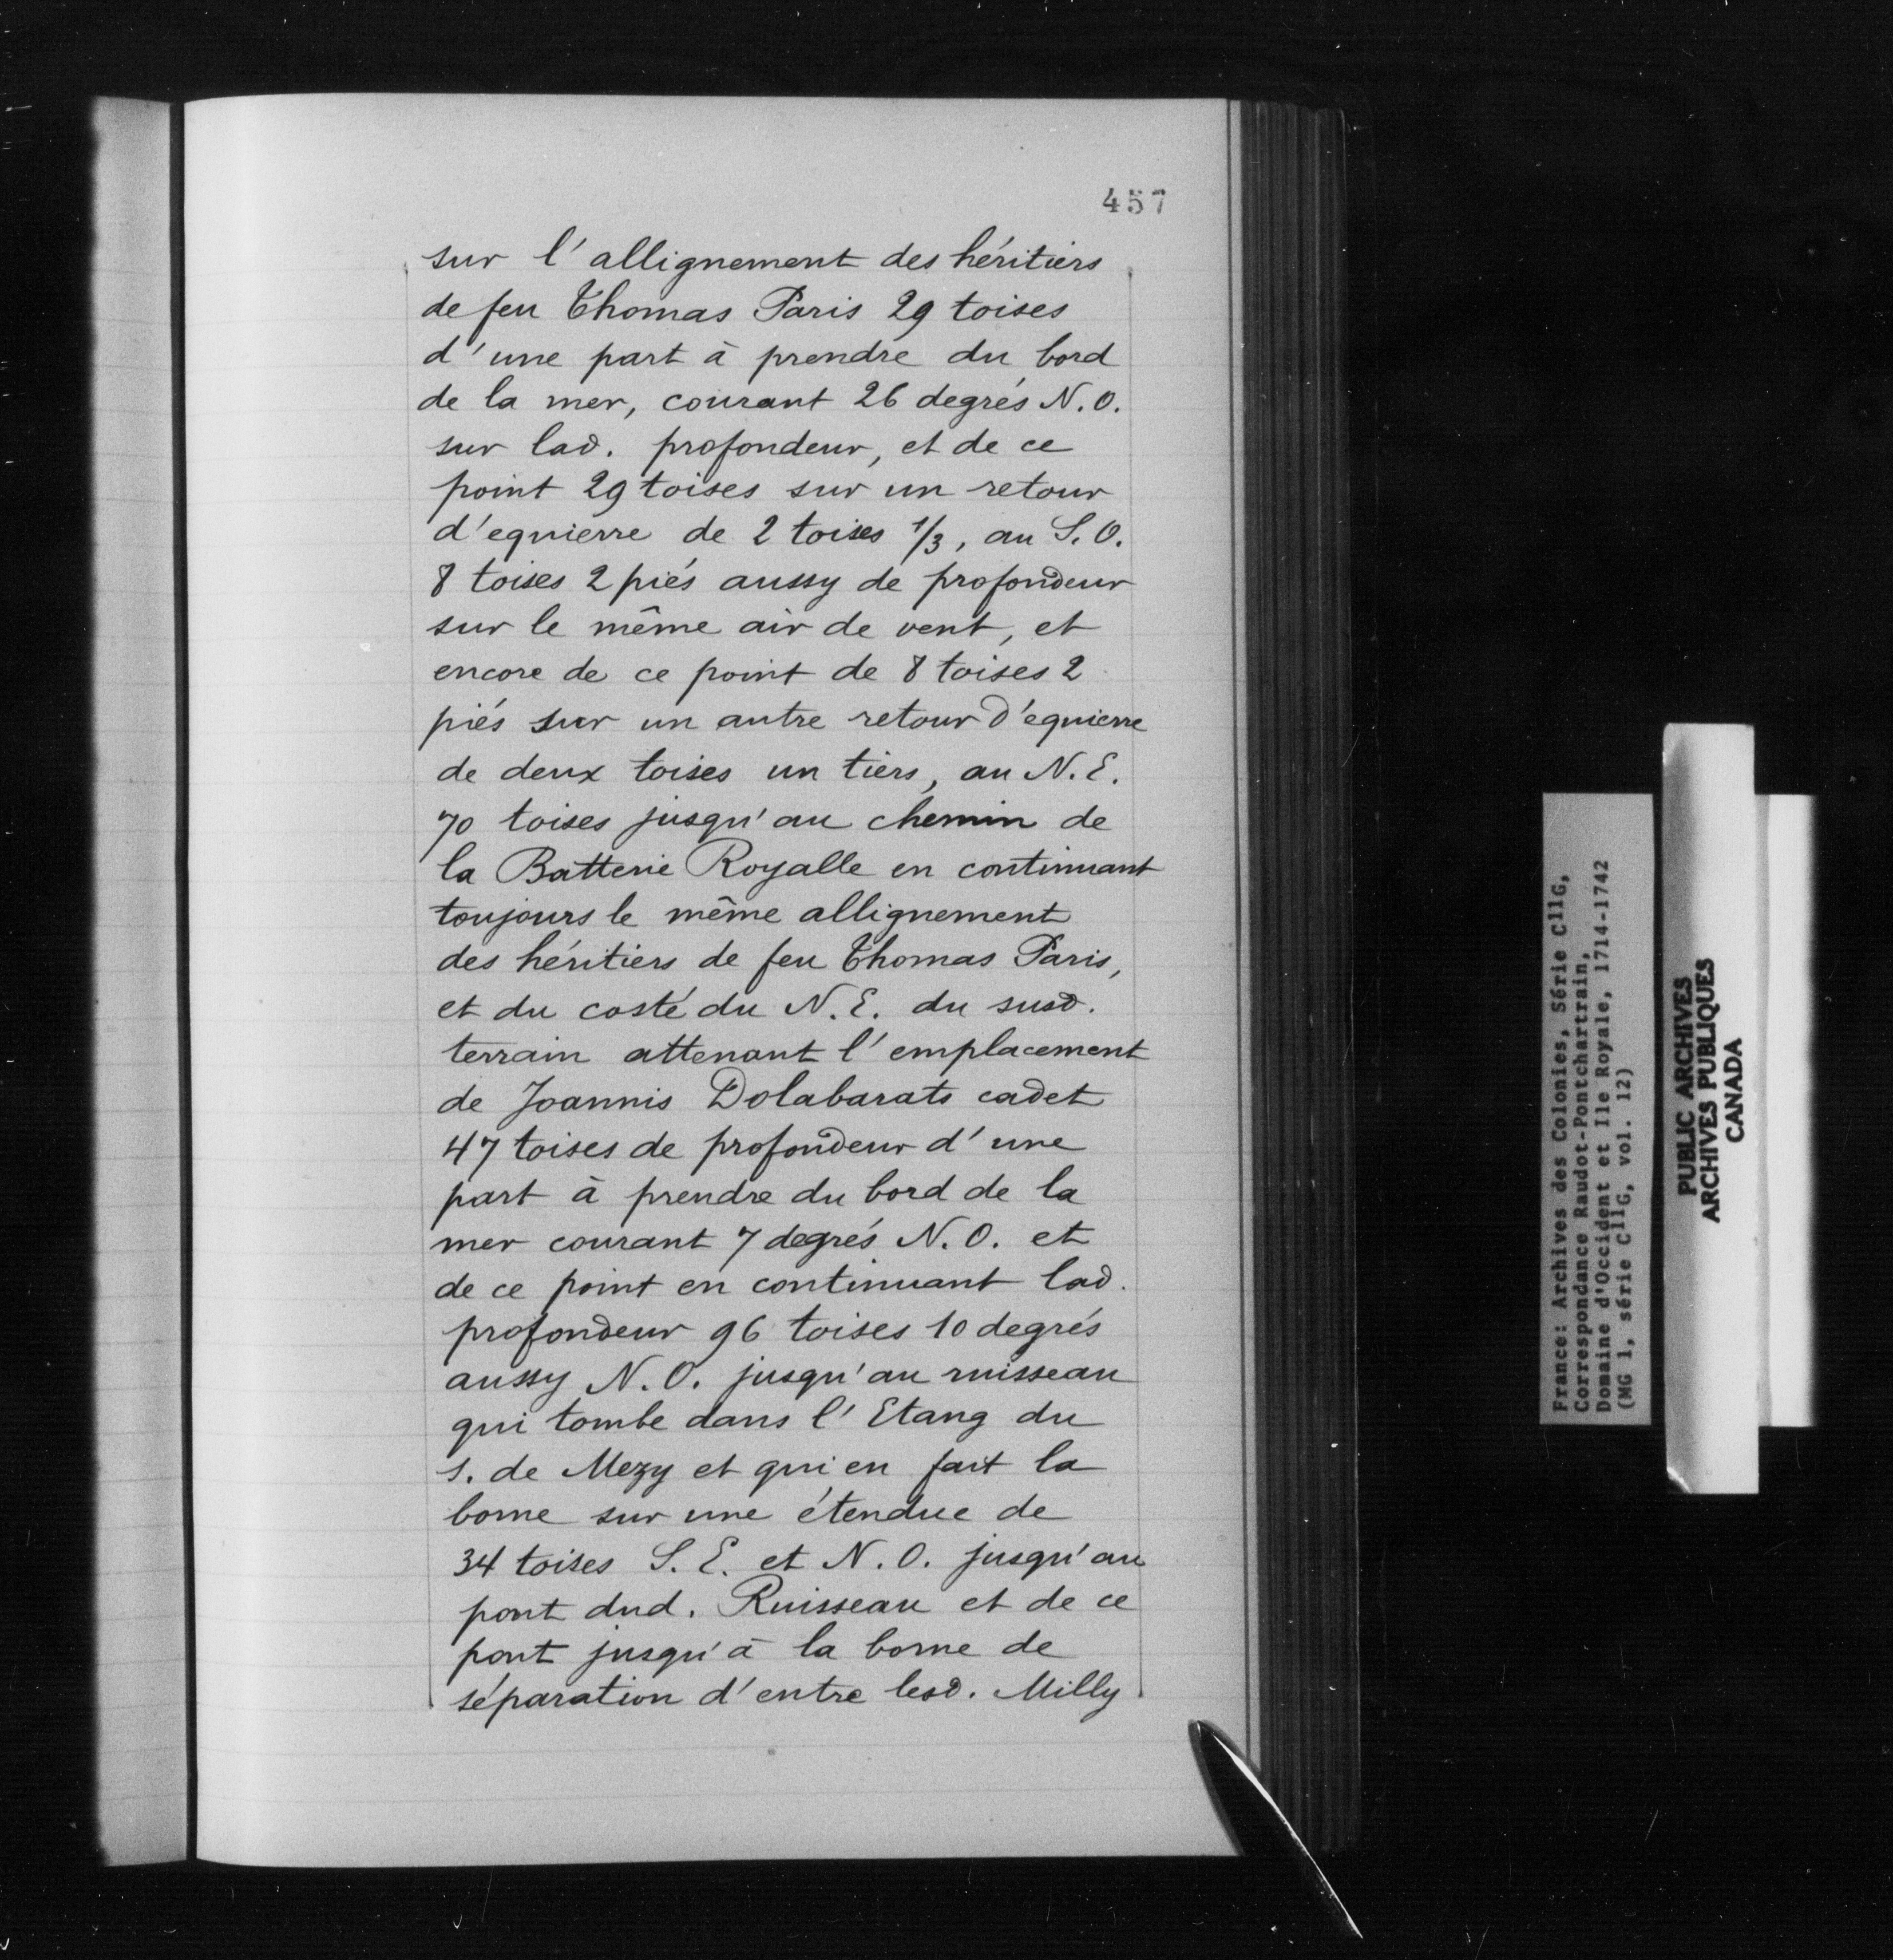 457
sur l'allignement des héritiers
de feu Thomas Paris 29 toises
d'une part à prendre du bord
de la mer, courant 26 degrés N.O.
sur lad. profondeur, et de ce
point 29 toises sur un retour
d'equierre de 2 toises 1/3, au S.O.
8 toises 2 piés aussy de profondeur
sur le même air de vent, et
encore de ce point de 8 toises 2
piés sur un autre retour d'equierre
de deux toises un tiers, au N.E.
70 toises jusqu'au chemin de
la Batterie Royalle en continuant
toujours le même allignement
des héritiers de feu Thomas Paris,
et du costé du N.E. du susd.
terrain attenant l'emplacement
de Joannis Dolabarats cadet
47 toises de profondeur d'une
part à prendre du bord de la
mer courant 7 degrés N.O. et
de ce point en continuant lad.
profondeur 96 toises 10 degrés
aussy N.O. jusqu'au ruisseau
qui tombe dans l'Etang du
s. de Mezy et qui en fait la
borne sur une étendue de
34 toises S.E. et N.O. jusqu'au
pont dud. Ruisseau et de ce
pont jusqu'à la borne de
séparation d'entre lesd. Milly
France: Archives des Colonies, Série C11G,
Correspondance Raudot-Pontchartrain,
Domaine d'Occident et Ile Royale, 1714-1742
(MG 1, série C11G, vol. 12)
PUBLIC ARCHIVES
ARCHIVES PUBLIQUES
CANADA